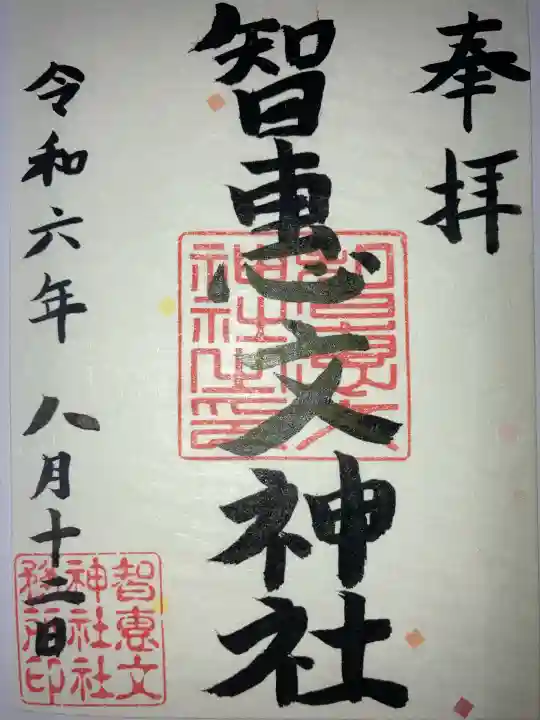 奉拝
智恵文神社
令和六年 八月十二日
智恵文神社之印
智恵文
神社社
務所印